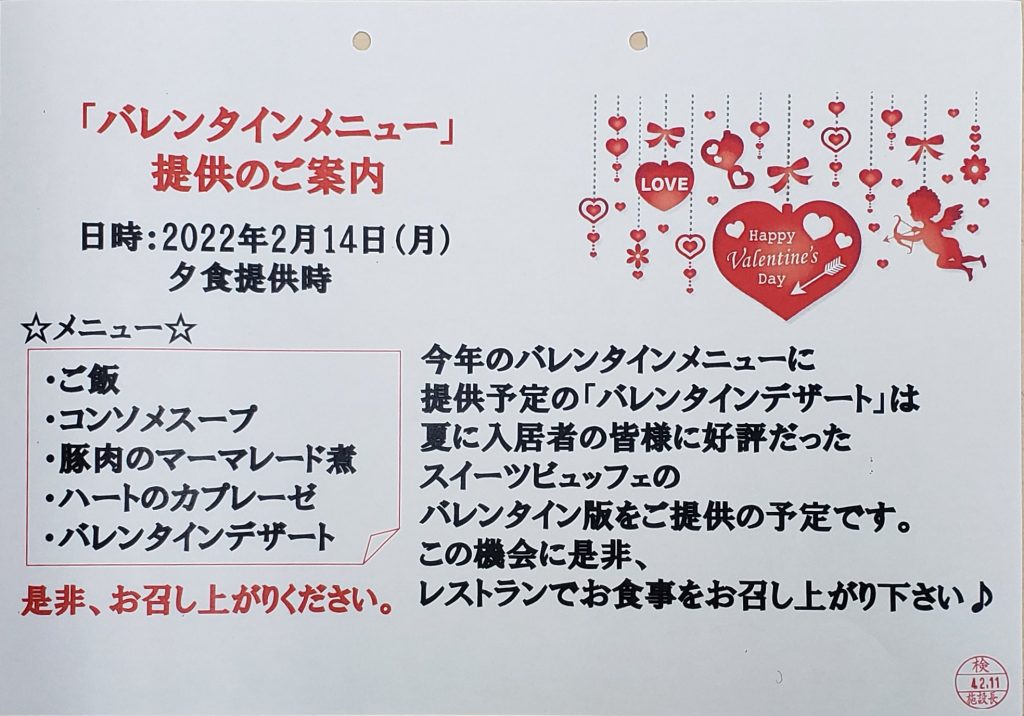 「バレンタインメニュー」
提供のご案内
日時：2022年2月14日（月）
夕食提供時
LOVE
Happy
Valentine's
Day
☆メニュー☆
・ご飯
・コンソメスープ
・豚肉のマーマレード煮
・ハートのカプレーゼ
・バレンタインデザート
是非、お召し上がりください。
今年のバレンタインメニューに
提供予定の「バレンタインデザート」は
夏に入居者の皆様に好評だった
スイーツビュッフェの
バレンタイン版をご提供の予定です。
この機会に是非、
レストランでお食事をお召し上がり下さい♪
検
4.2.11
施設長